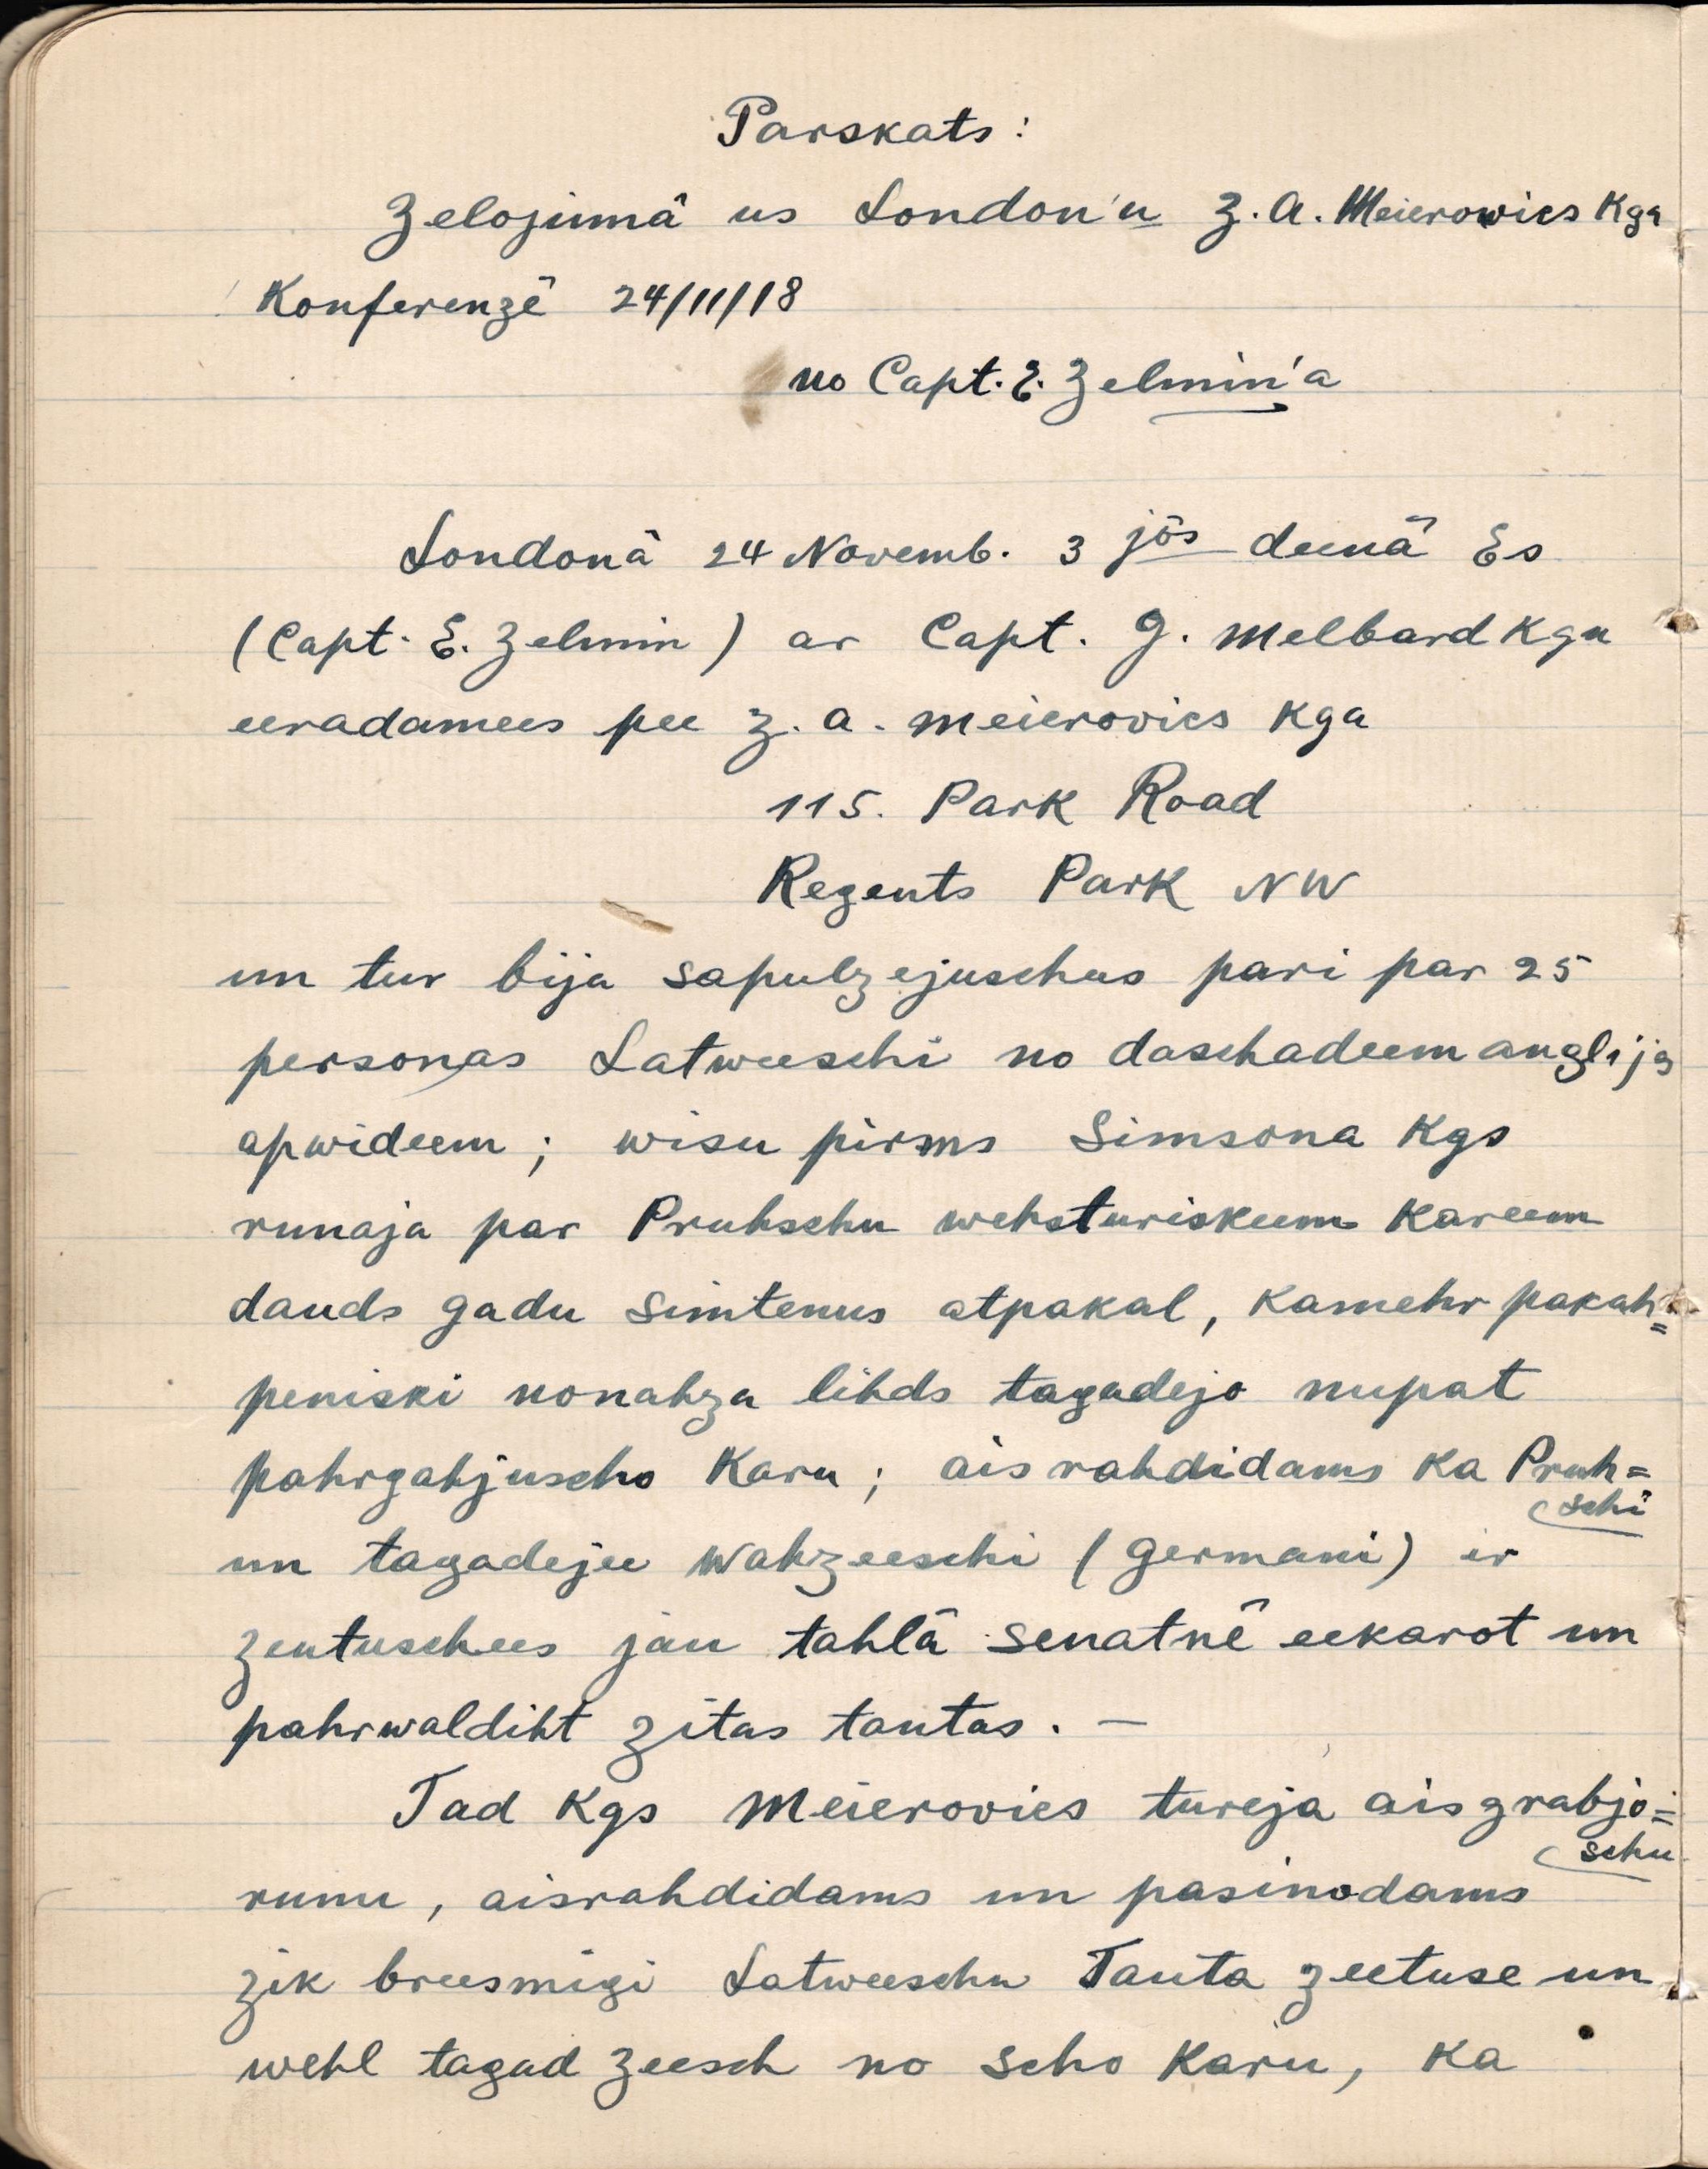 Parskats:
Zelojumâ us London'u Z. A. Meierowics Kga
Konferenzê 24/11/18
no Capt. E. Zelmin'a
Londonâ 24 Novemb. 3 jös deenâ Es
(Capt. E. Zelmin) ar Capt. G. Melbard Kgu
eeradamees pee Z. A. Meierovics Kga
115. Park Road
Regents Park NW
un tur bija sapulzejuschas pari par 25
personas Latweeschi no daschadeem anglijas
apwideem; wisu pirms Simsona Kgs
runaja par Pruhschu wehsturiskeem Kareem
dauds gadu simtenus atpakal, kamehr pakah=
peniski nonahza lihds tagadejo nupat
pahrgahjuscho Karu; aisrahdidams ka Pruh=
schi
un tagadejee Wahzeeschi (Germani) ir
zentuschees jau tahlâ senatnê eekarot un
pahrwaldiht zitas tautas. —
Tad Kgs Meierovics tureja aisgrabjo=
schu
runu, aisrahdidams un pasinodams
zik breesmigi Latweeschu Tauta zeetuse un
wehl tagad zeesch no scho Karu, ka